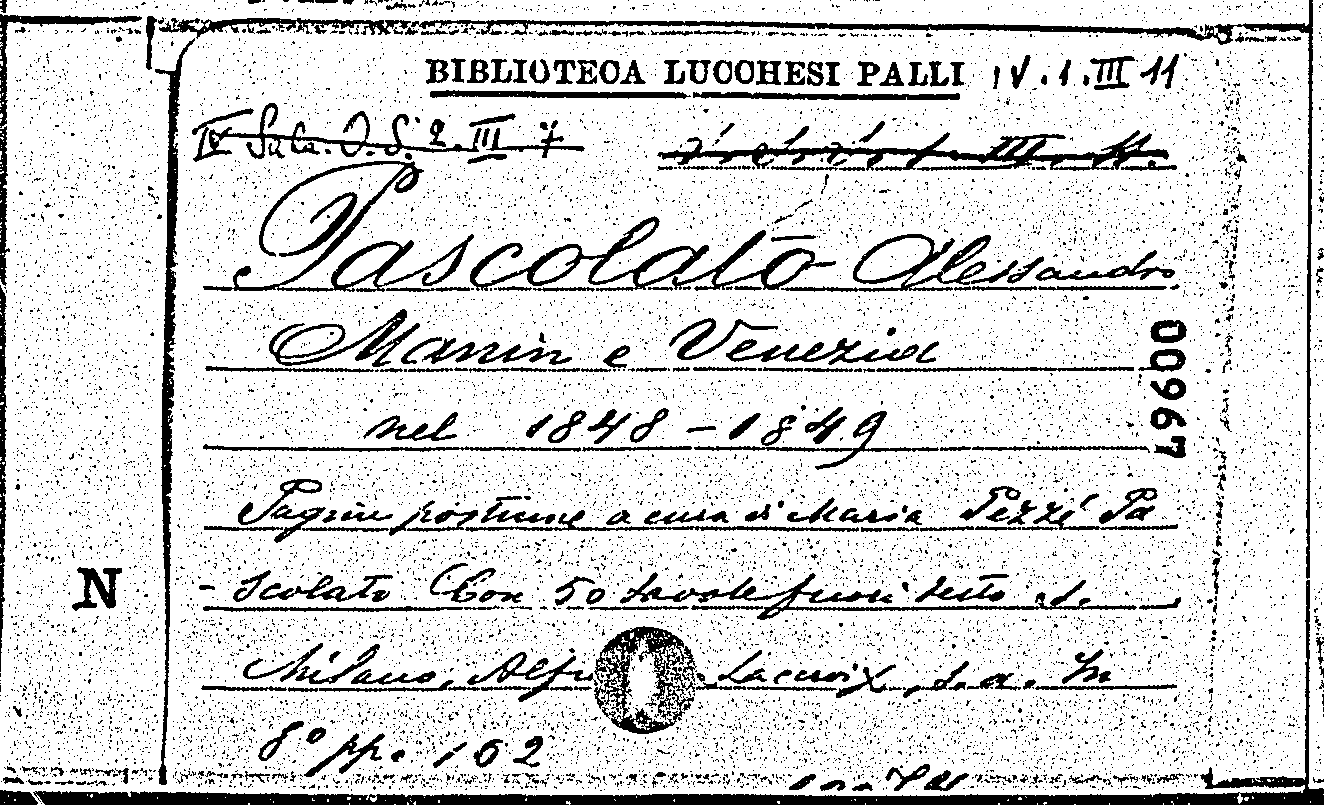 BIBLIOTECA LUCCHESI PALLI IV.1.III 11
IV Sala. O. S. 2. III. 7
Pascolato Alessandro
Manin e Venezia
nel 1848 - 1849
Pagine postume a cura di Maria Pezzé Pa
- scolato Con 50 tavole fuori testo
Milano, Lacroix, s. a. In
8° pp. 162
00967
N